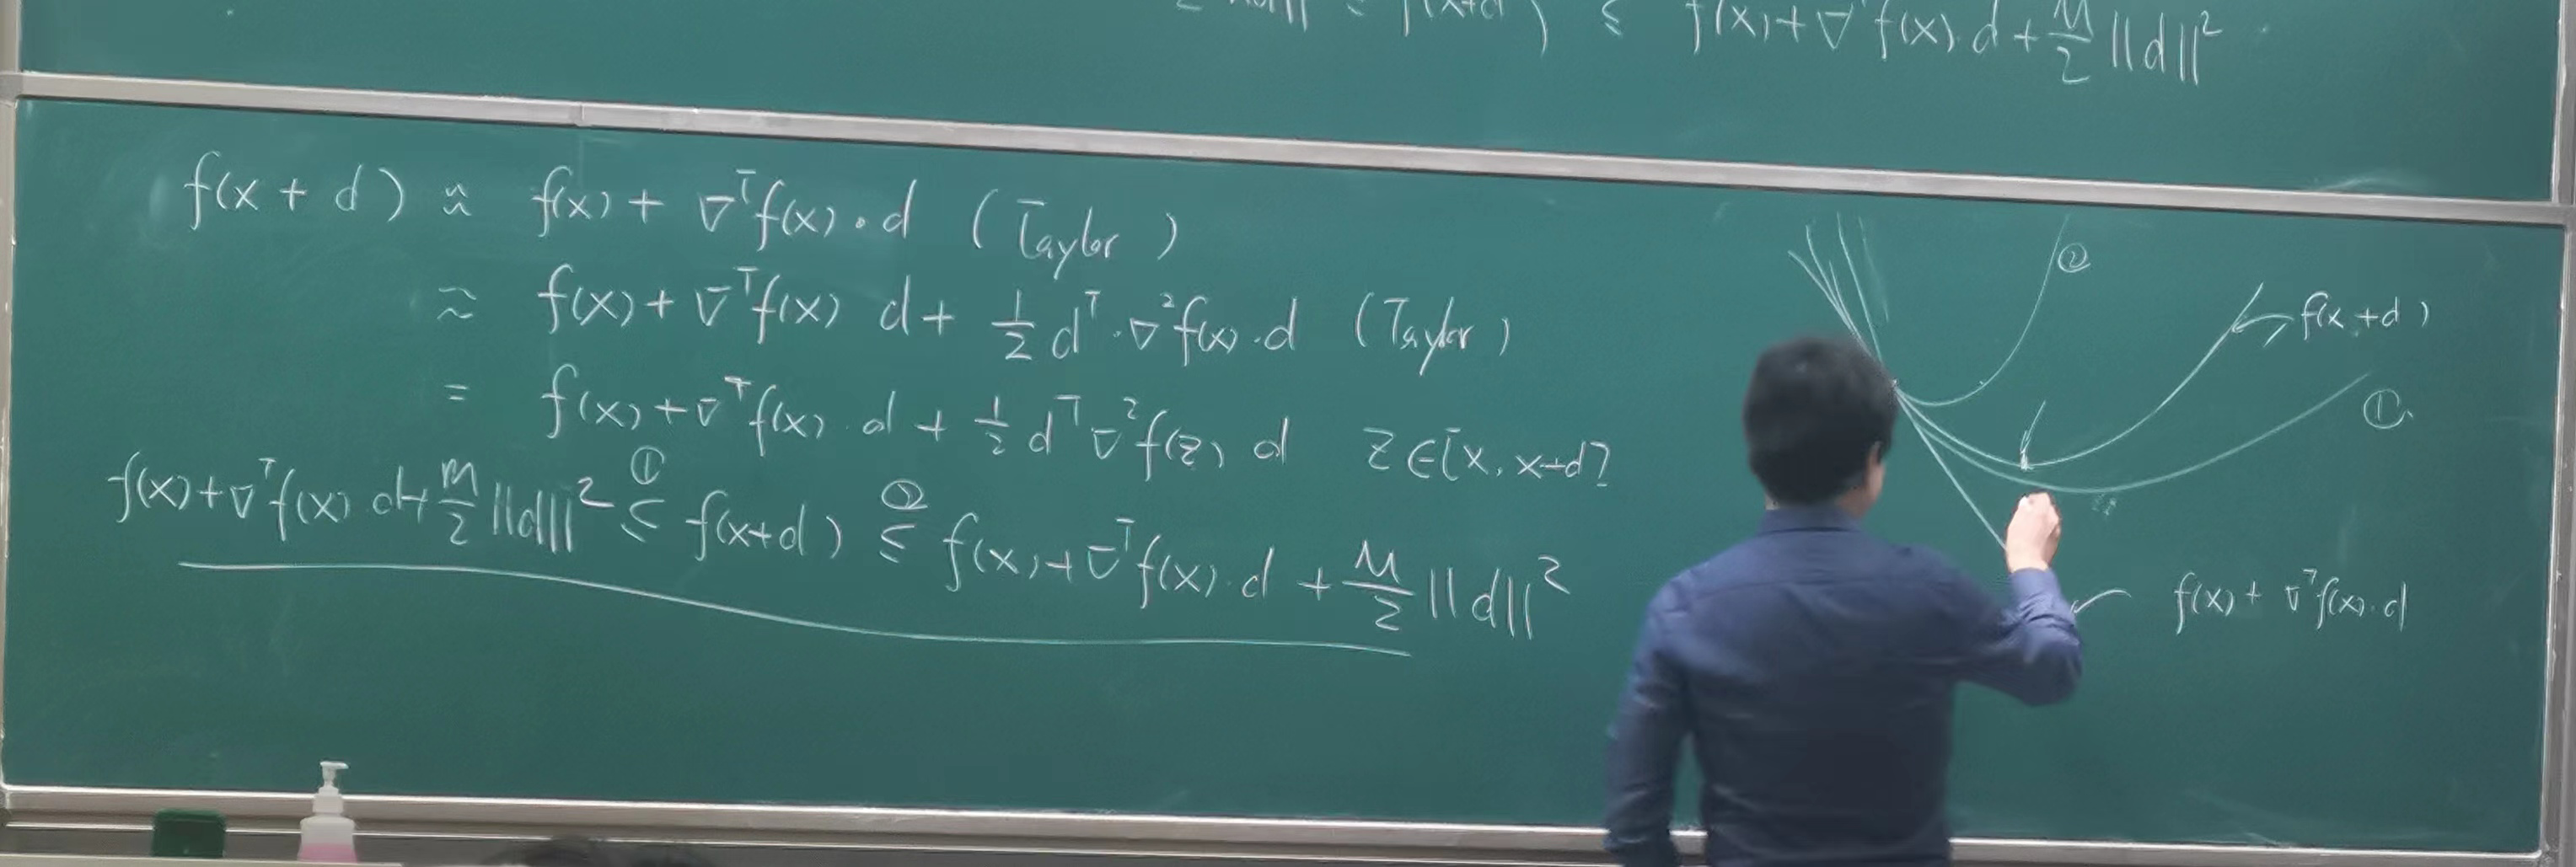 f(x+d) ≤ f(x)+∇ᵀf(x).d+M/2||d||²
f(x + d) ≈ f(x) + ∇ᵀf(x)·d (Taylor)
≈ f(x)+∇ᵀf(x) d+ 1/2 dᵀ·∇²f(x)·d (Taylor)
= f(x)+∇ᵀf(x).d + 1/2 dᵀ∇²f(z) d z∈[x, x+d]
f(x)+∇ᵀf(x).d+m/2||d||² ① ≤ f(x+d) ② ≤ f(x)+∇ᵀf(x).d + M/2||d||²
②
f(x+d)
①
f(x)+ ∇ᵀf(x).d